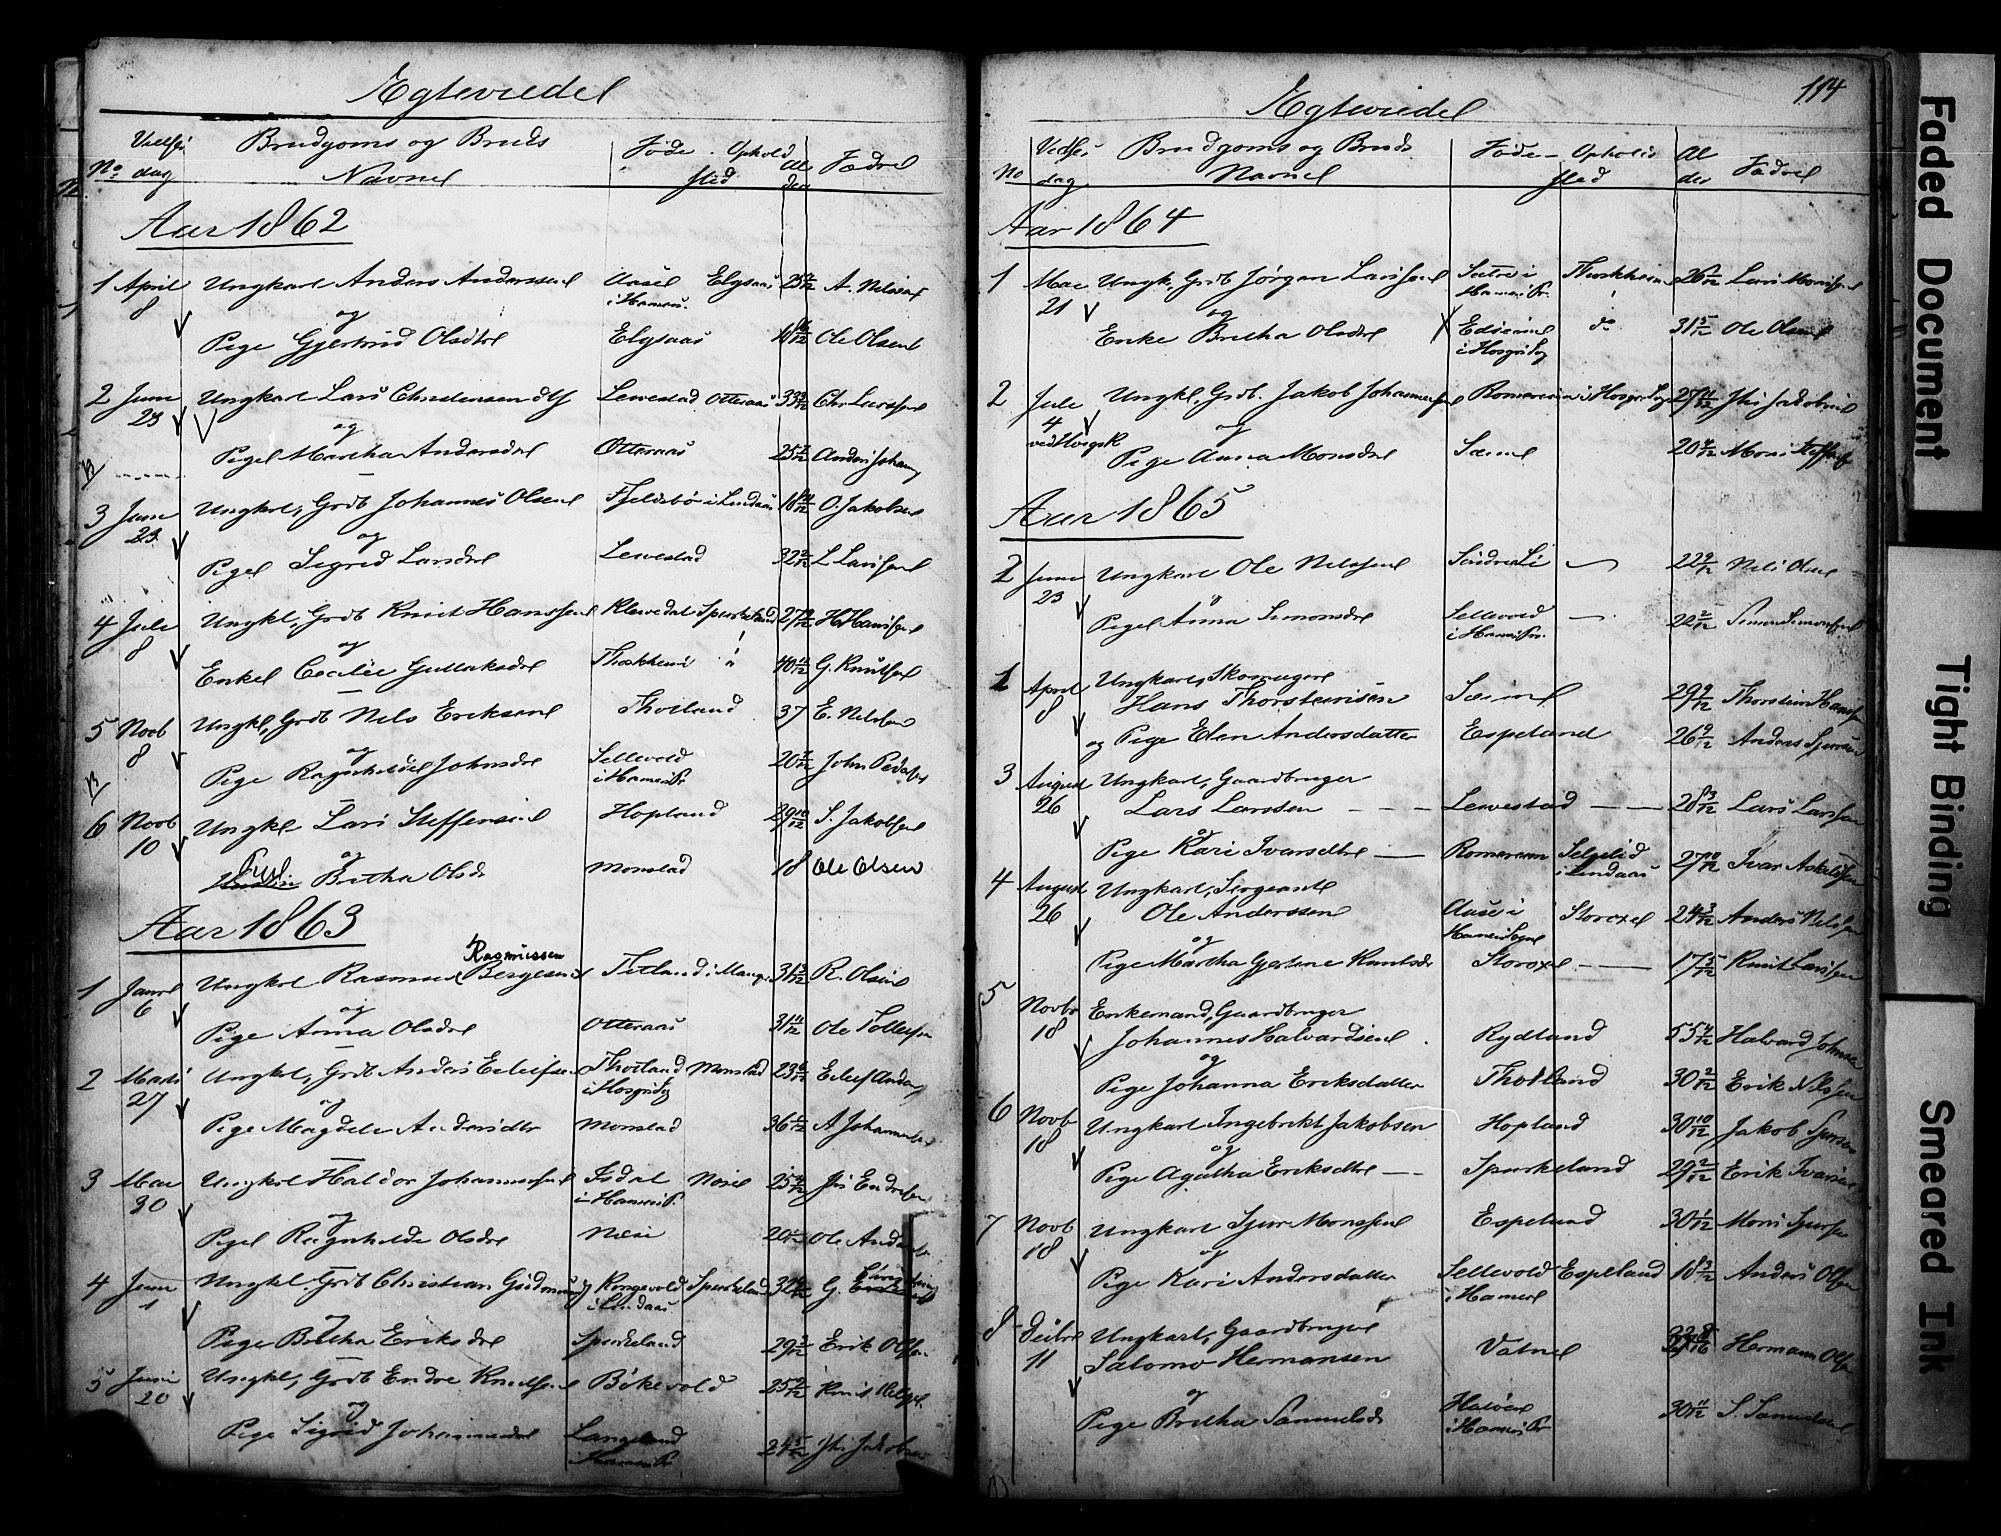 Egteviede
No Vielses dag Brudgoms og Bruds Navne Føde- Ophold sted Al der Fædre
Aar 1862
1 April 8 Ungkarl Anders Anderssen Aase i Hammers. Elgsaas A. Nelssen
og
Pige Gjertrud Olsdtr Elgsaas Ole Olsen
2 Juni 23 Ungkarl Lars Christensen Levestad Otteraas Chr. Larssen
og
Pige Martha Andersdtr Otteraas 25 Anders Johan
3 Juni 23 Ungkrl, Grdb Johannes Olsen Fjeldsbø i Lindaas 18 O. Jakobsen
og
Pige Sigrid Larsdtr Levestad 32 2/12 L Larssen
4 Juli 8 Ungkl, Grdb Knut Hanssen Klevedal Spurkeland 27 H. Hanssen
og
Enke Cecilie Gullaksdtr Thoskheim 40 G. Knutsen
5 Novb 8 Ungkl, Grdb Nels Eriksen Thotland 37 E. Nelsen
og
Pige Ragnhilde Johnsdtr Sellevold i Hammers Pr 20 John Peders
6 Novb 10 Ungkl Lars Steffensen Hopland 29 10/12 S. Jakobsen
og
Pige Britha Olsdr Monstad 18 Ole Olsen
Aar 1863
Rasmussen
1 Janr 6 Ungkrl Rasmus Bergesen Totland i Mang. 31 R. Olsen
og
Pige Anna Olsdtr Otteraas 31 11/12 Ole Tollefsen
2 Marts 27 Ungkl, Grdb Anders Eelefsen Thotland i Hosgrs Sog Monstad 23 Eelef Anders
og
Pige Magdele Andersdtr Monstad 36 A Johannes
3 Mai 30 Ungkrl Haldor Johannessen Isdal i Hammers P. Næse 25 Js Endresen
og
Pige Ragnhilde Olsdtr Næse 20 Ole Anders
4 Juni 1 Ungkl. Grdb Christian Gudmund Kongevold i Lindaas Spurkeland 32 G.
og
Pige Britha Eriksdtr Spurkeland 29 Erik Olsen
5 Juni 20 Ungkl, Grdb Endre Knudsen Bøkevold 25 Knut Helges.
og
Pige Sigrid Johannesdtr Langeland Hammers Pr 24 Js Jakobsen
114
Egteviede
No Vielses dag Brudgoms og Bruds Navne Føde- Opholds sted Al der Fædre
Aar 1864
1 Mai 21 Ungk, Grdb Jørgen Larssen Sætre i Hammers Pr. Thoskheim 26 Lars Monssen
og
Enke Britha Olsdtr i Hosgrs Sog do 31 5/12 Ole Olsen
2 Juli 4 ved Hosgr K Ungkl, Grdb. Jakob Johannessen Romarein i Hosgrs Sog 25 Js Jakobsen
og
Pige Anna Monsdtr Sæim 20 Mons Steffens
Aar 1865
2 Juni 23 Ungkarl Ole Nelssen Søndre Li 22 9/12 Nels Olsen
og
Pige Anna Simonsdtr Sellevold i Hammers Pr. — 22 2/12 Simon Simonssen
1 April 8 Ungkarl, Skomager
Hans Thorsteinsen Sæim 29 9/12 Thorstein Hanssen
og Pige Elen Andersdatter Espeland 26 9/12 Anders Sjursen
3 August 26 Ungkarl, Gaardbruger
Lars Larssen — — — Levestad — — 28 3/12 Lars Larssen
og
Pige Kari Ivarsdtr — Romarein Selgelid i Lindaas 27 10/12 Ivar Askelssen
4 August 26 Ungkarl, Sergeant
Ole Anderssen Aase i Hammers Sogn Storoxe 24 3/12 Anders Nelssen
og
Pige Martha Gjertine Knutsdr Storoxe — — 17 5/12 Knut Larssen
5 Novbr 18 Enkemand, Gaardbruger
Johannes Halvardsen Rydland 55 Halvard Johnsen
og
Pige Johanna Eriksdatter Thotland 30 2/12 Erik Nelssen
6 Novb 18 Ungkarl Ingebrikt Jakobsen Hopland 30 10/12 Jakob Sjursen
og
Pige Agatha Eriksdtr — — Spurkeland 29 2/12 Erik Ivarsen
7 Novb 18 Ungkarl Sjur Monssen Espeland 30 1/12 Mons Sjursen
og
Pige Kari Andersdatter Sellevold i Hamre Espeland 18 3/12 Anders Olsen
8 Decbr 11 Ungkarl, Gaardbruger
Salomo Hermansen Vatne Herman Olsen
og
Pige Britha Samuelsdr i Hammers Pr 30 11/12 S. Samuelsen
Faded Document
Tight Binding
Smeared Ink